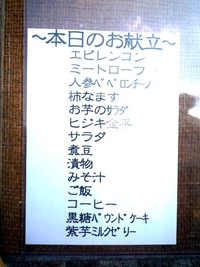 ～本日のお献立～
エビレンコン
ミートローフ
人参ペペロンチーノ
柿なます
お芋のサラダ
ヒジキ金平
サラダ
煮豆
漬物
みそ汁
ご飯
コーヒー
黒糖パウンドケーキ
紫芋ミルクゼリー